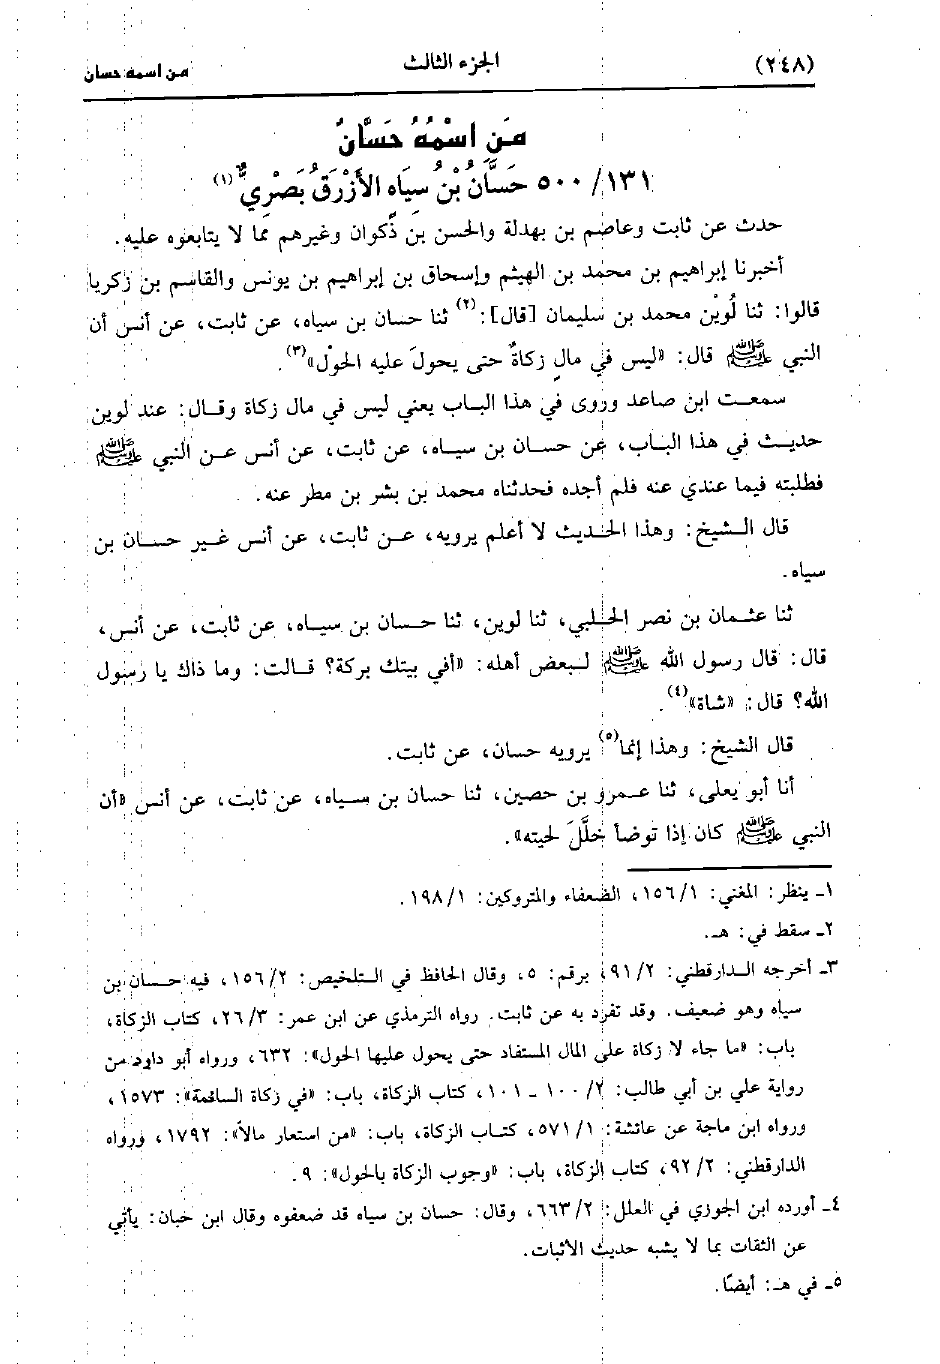 (٢٤٨) الجزء الثالث من اسمه حسان
مَن اسْمُهُ حَسَّانُ
١٣١/ ٥٠٠ حَسَّانُ بْنُ سِيَاهِ الأَزْرَقُ بَصْرِيٌّ(١)
حدث عن ثابت وعاصم بن بهدلة والحسن بن ذكوان وغيرهم مما لا يتابعوه عليه.
أخبرنا إبراهيم بن محمد بن الهيثم وإسحاق بن إبراهيم بن يونس والقاسم بن زكريا
قالوا: ثنا لُوَيْن محمد بن سليمان [قال]:(٢) ثنا حسان بن سياه، عن ثابت، عن أنس أن
النبي ﷺ قال: «ليس في مالٍ زكاةٌ حتى يحولَ عليه الحَوْل»(٣).
سمعت ابن صاعد وروى في هذا الباب يعني ليس في مال زكاة وقال: عند لوين
حديث في هذا الباب، عن حسان بن سياه، عن ثابت، عن أنس عن النبي ﷺ
فطلبته فيما عندي عنه فلم أجده فحدثناه محمد بن بشر بن مطر عنه.
قال الشيخ: وهذا الحديث لا أعلم يرويه، عن ثابت، عن أنس غير حسان بن
سياه.
ثنا عثمان بن نصر الحلبي، ثنا لوين، ثنا حسان بن سياه، عن ثابت، عن أنس،
قال: قال رسول الله ﷺ لبعض أهله: «أفي بيتك بركة؟ قالت: وما ذاك يا رسول
الله؟ قال: «شاة»(٤).
قال الشيخ: وهذا إنما(٥) يرويه حسان، عن ثابت.
أنا أبو يعلى، ثنا عمرو بن حصين، ثنا حسان بن سياه، عن ثابت، عن أنس «أن
النبي ﷺ كان إذا توضأ خلَّلَ لحيته».
١ـ ينظر: المغني: ١/ ١٥٦، الضعفاء والمتروكين: ١/ ١٩٨.
٢ـ سقط في: هـ.
٣ـ أخرجه الدارقطني: ٢/ ٩١، برقم: ٥، وقال الحافظ في التلخيص: ٢/ ١٥٦، فيه حسان بن
سياه وهو ضعيف. وقد تفرد به عن ثابت. رواه الترمذي عن ابن عمر: ٣/ ٢٦، كتاب الزكاة،
باب: «ما جاء لا زكاة على المال المستفاد حتى يحول عليها الحول»: ٦٣٢، ورواه أبو داود من
رواية علي بن أبي طالب: ٢/ ١٠٠ ـ ١٠١، كتاب الزكاة، باب: «في زكاة السائمة»: ١٥٧٣،
ورواه ابن ماجة عن عائشة: ١/ ٥٧١، كتاب الزكاة، باب: «من استعار مالاً»: ١٧٩٢، ورواه
الدارقطني: ٢/ ٩٢، كتاب الزكاة، باب: «وجوب الزكاة بالحول»: ٩.
٤ـ أورده ابن الجوزي في العلل: ٢/ ٦٦٣، وقال: حسان بن سياه قد ضعفوه وقال ابن حبان: يأتي
عن الثقات بما لا يشبه حديث الأثبات.
٥ـ في هـ: أيضًا.